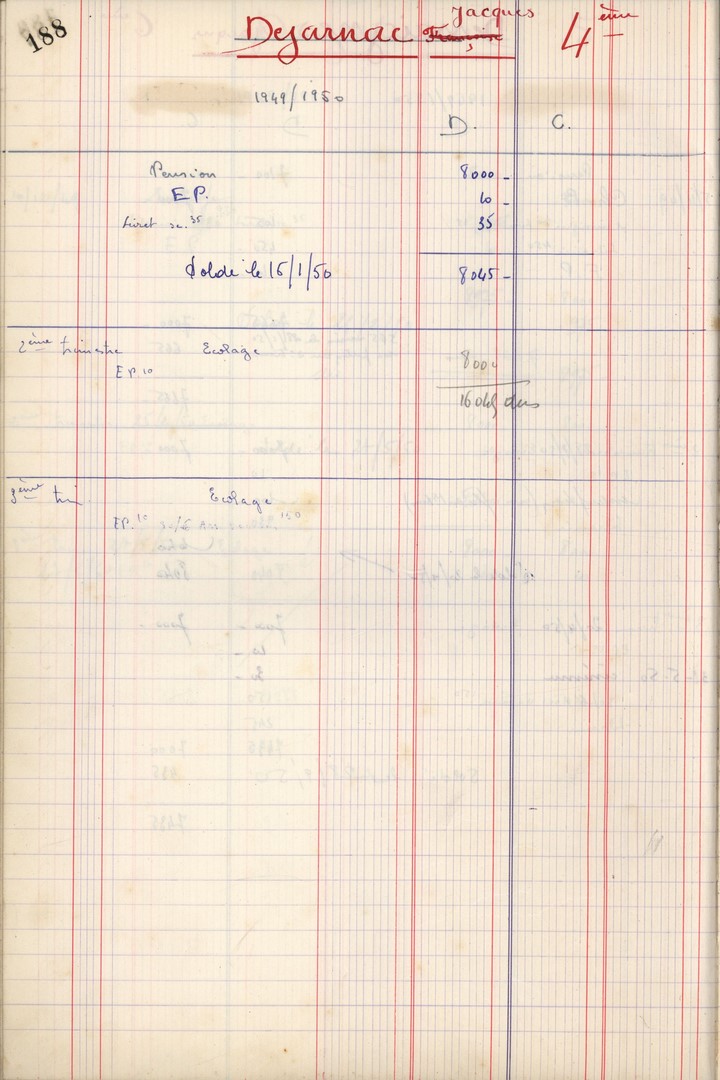 188
Dejarnac Jacques 4ème
1949/1950
D. C.
Pension 8000 -
E.P. 10 -
Livret sc. 35 35
Solde le 16/1/50 8045 -
2ème trimestre Ecolage 8000
EP. 10
dus
3ème tri Ecolage
EP. 10 150